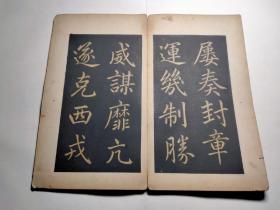 屢奏封章
運幾制勝
威謀靡亢
遂克西戎